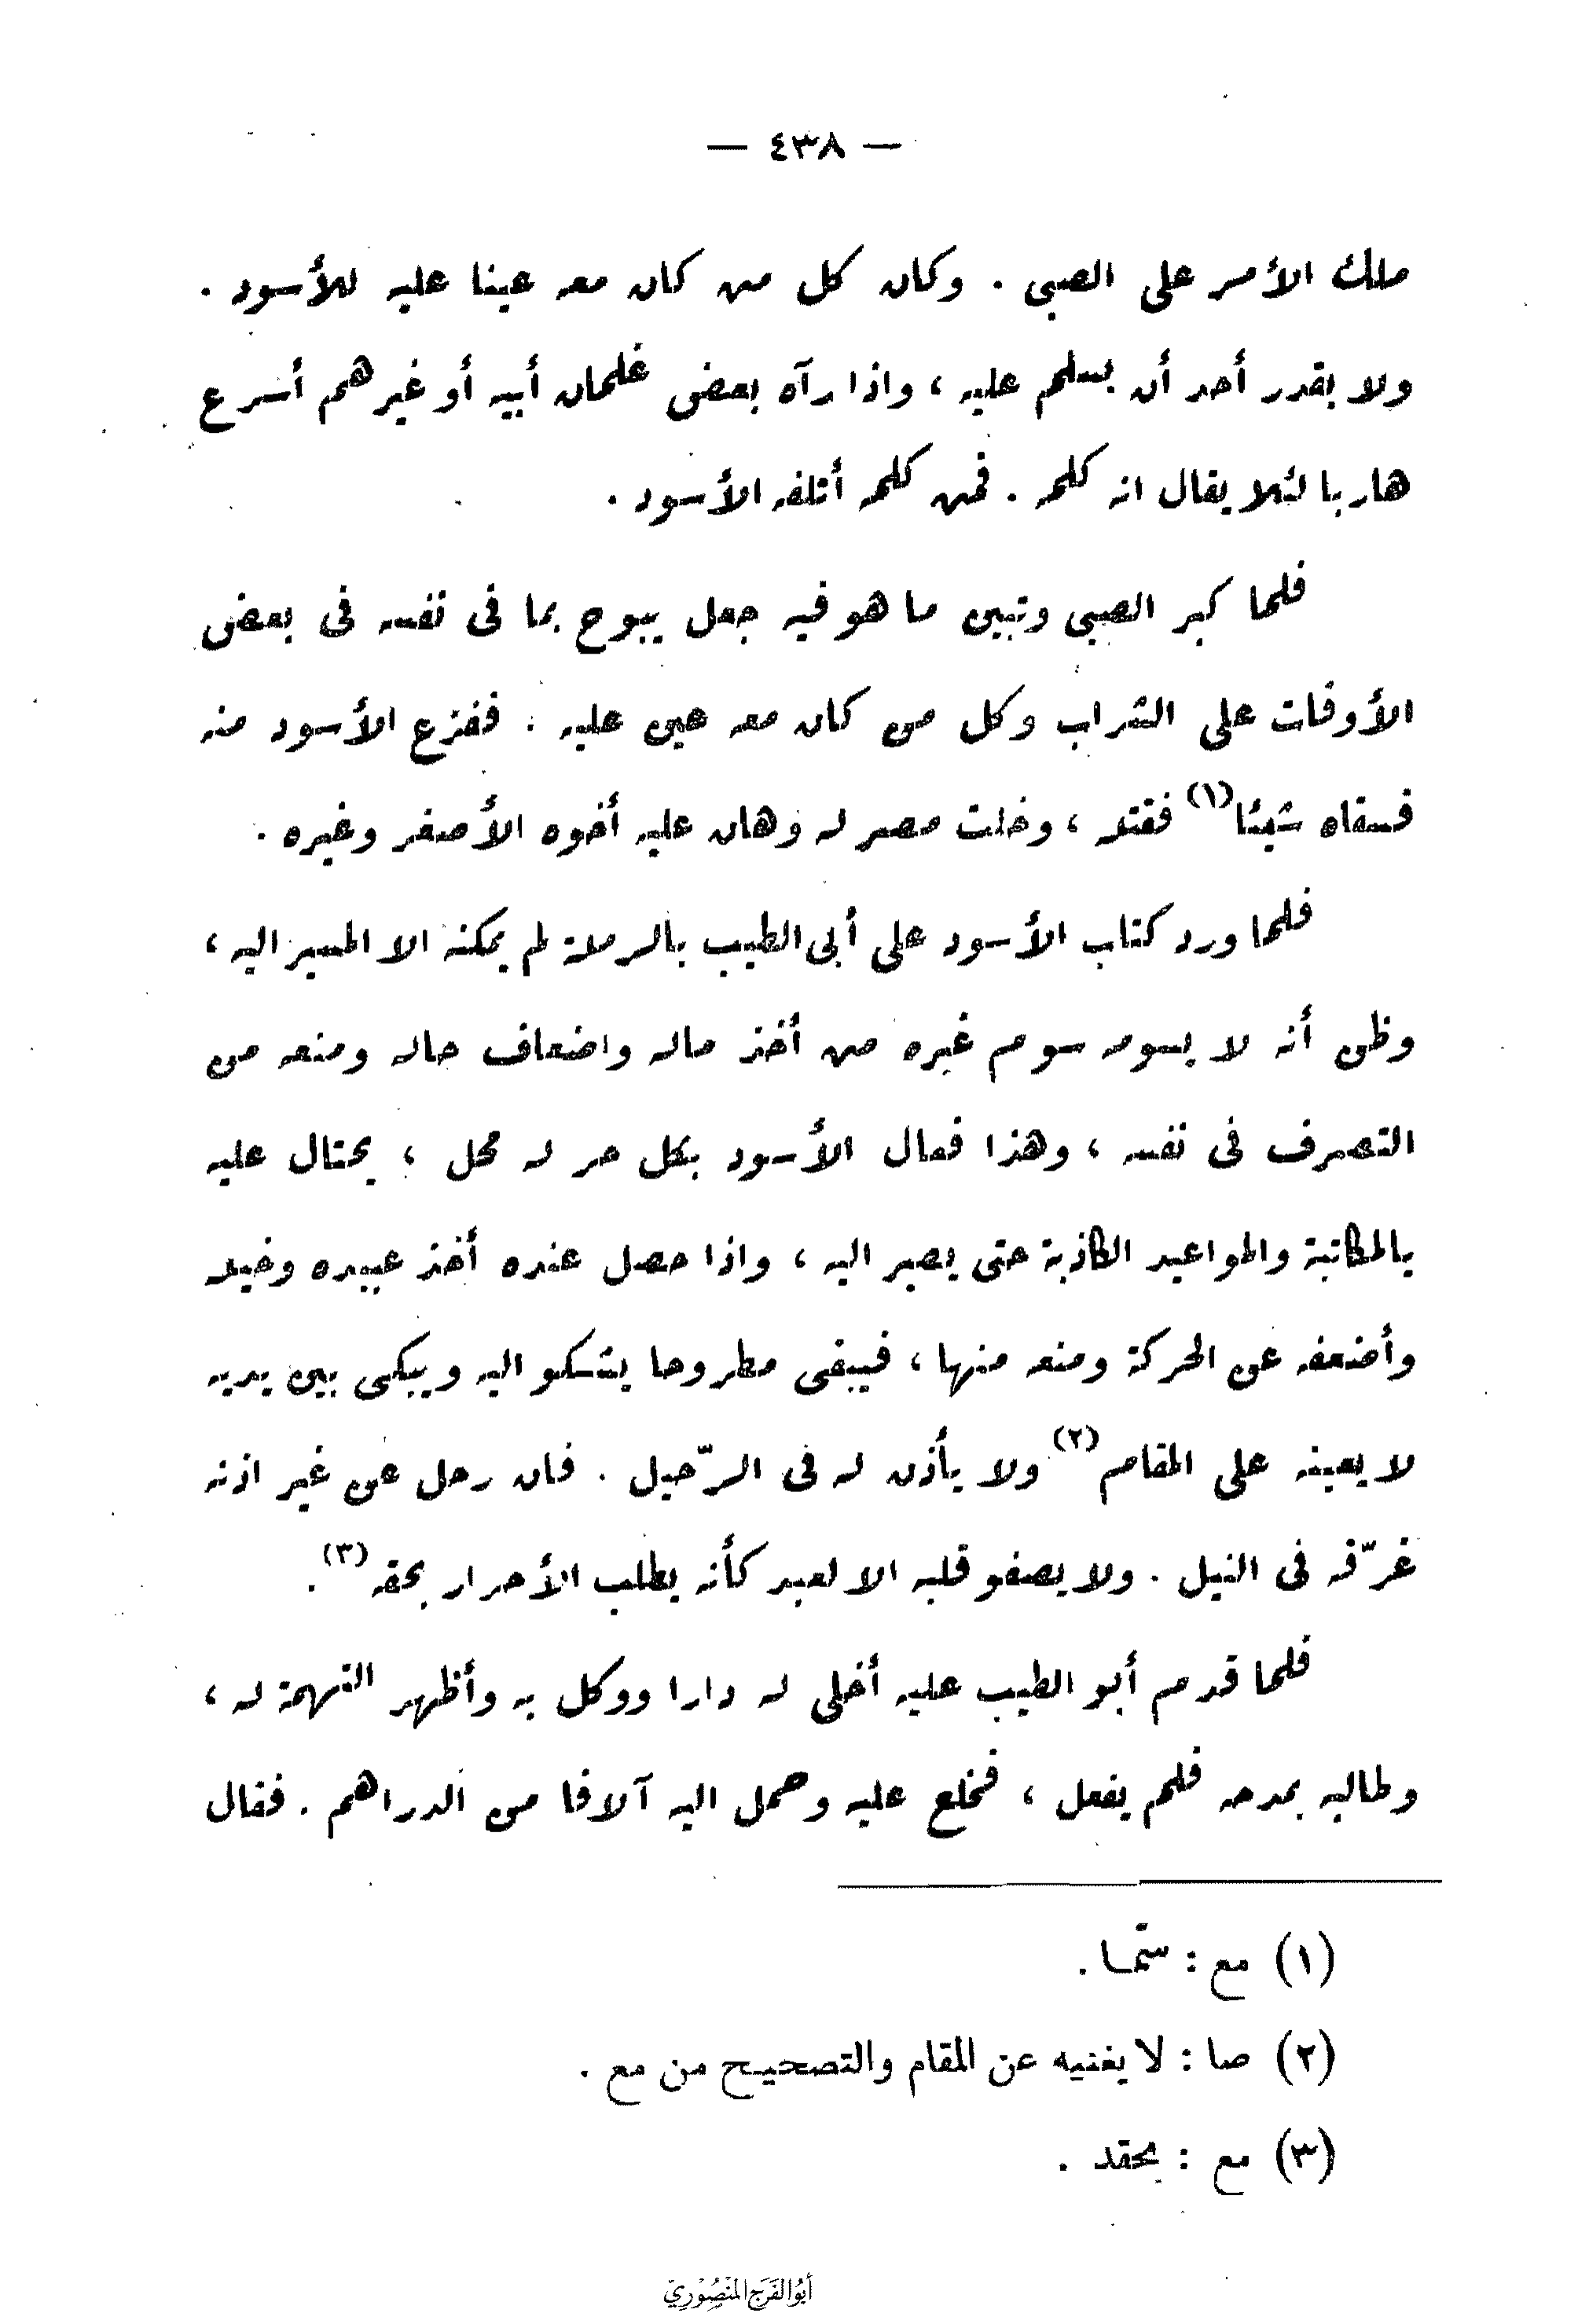 — ٤٣٨ —
ملك الأمر على الصبى . وكان كل من كان معه عينا عليه للأسود .
ولا يقدر أحد أن يسلم عليه ، واذا رآه بعض غلمان أبيه أو غيرهم أسرع
هاربا لئلا يقال انه كلمه . فمن كلمه أتلفه الأسود .
فلما كبر الصبى وتبين ما هو فيه جعل يبوح بما فى نفسه فى بعض
الأوقات على الشراب وكل من كان معه عين عليه . ففزع الأسود منه
فسقاه شيئا (١) فقتله ، وخلت مصر له وهان عليه أخوه الأصغر وغيره .
فلما ورد كتاب الأسود على أبى الطيب بالرملة لم يمكنه الا المسير اليه ،
وظن أنه لا يسومه سوم غيره من أخذ ماله واضعاف حاله ومنعه من
التصرف فى نفسه ، وهذا فعال الأسود بكل حر له محل ، يحتال عليه
بالمكاتبة والمواعيد الكاذبة حتى يصير اليه ، واذا حصل عنده أخذ عبيده وخيله
وأضعفه عن الحركة ومنعه منها ، فيبقى مطروحا يشكو اليه ويبكى بين يديه
لا يعينه على المقام (٢) ولا يأذن له فى الرّحيل . فان رحل عن غير اذنه
غرّقه فى النيل . ولا يصفو قلبه الا لعبد كأنه يطلب الأحرار بحقه (٣) .
فلما قدم أبو الطيب عليه أخلى له دارا ووكل به وأظهر التهمة له ،
وطالبه بمدحه فلم يفعل ، فخلع عليه وحمل اليه آلافا من الدراهم . فقال
(١) مع : سمّا .
(٢) صا : لا يغنيه عن المقام والتصحيح من مع .
(٣) مع : بحقد .
أبُو الفَرَج المَنْصُوْرِيّ